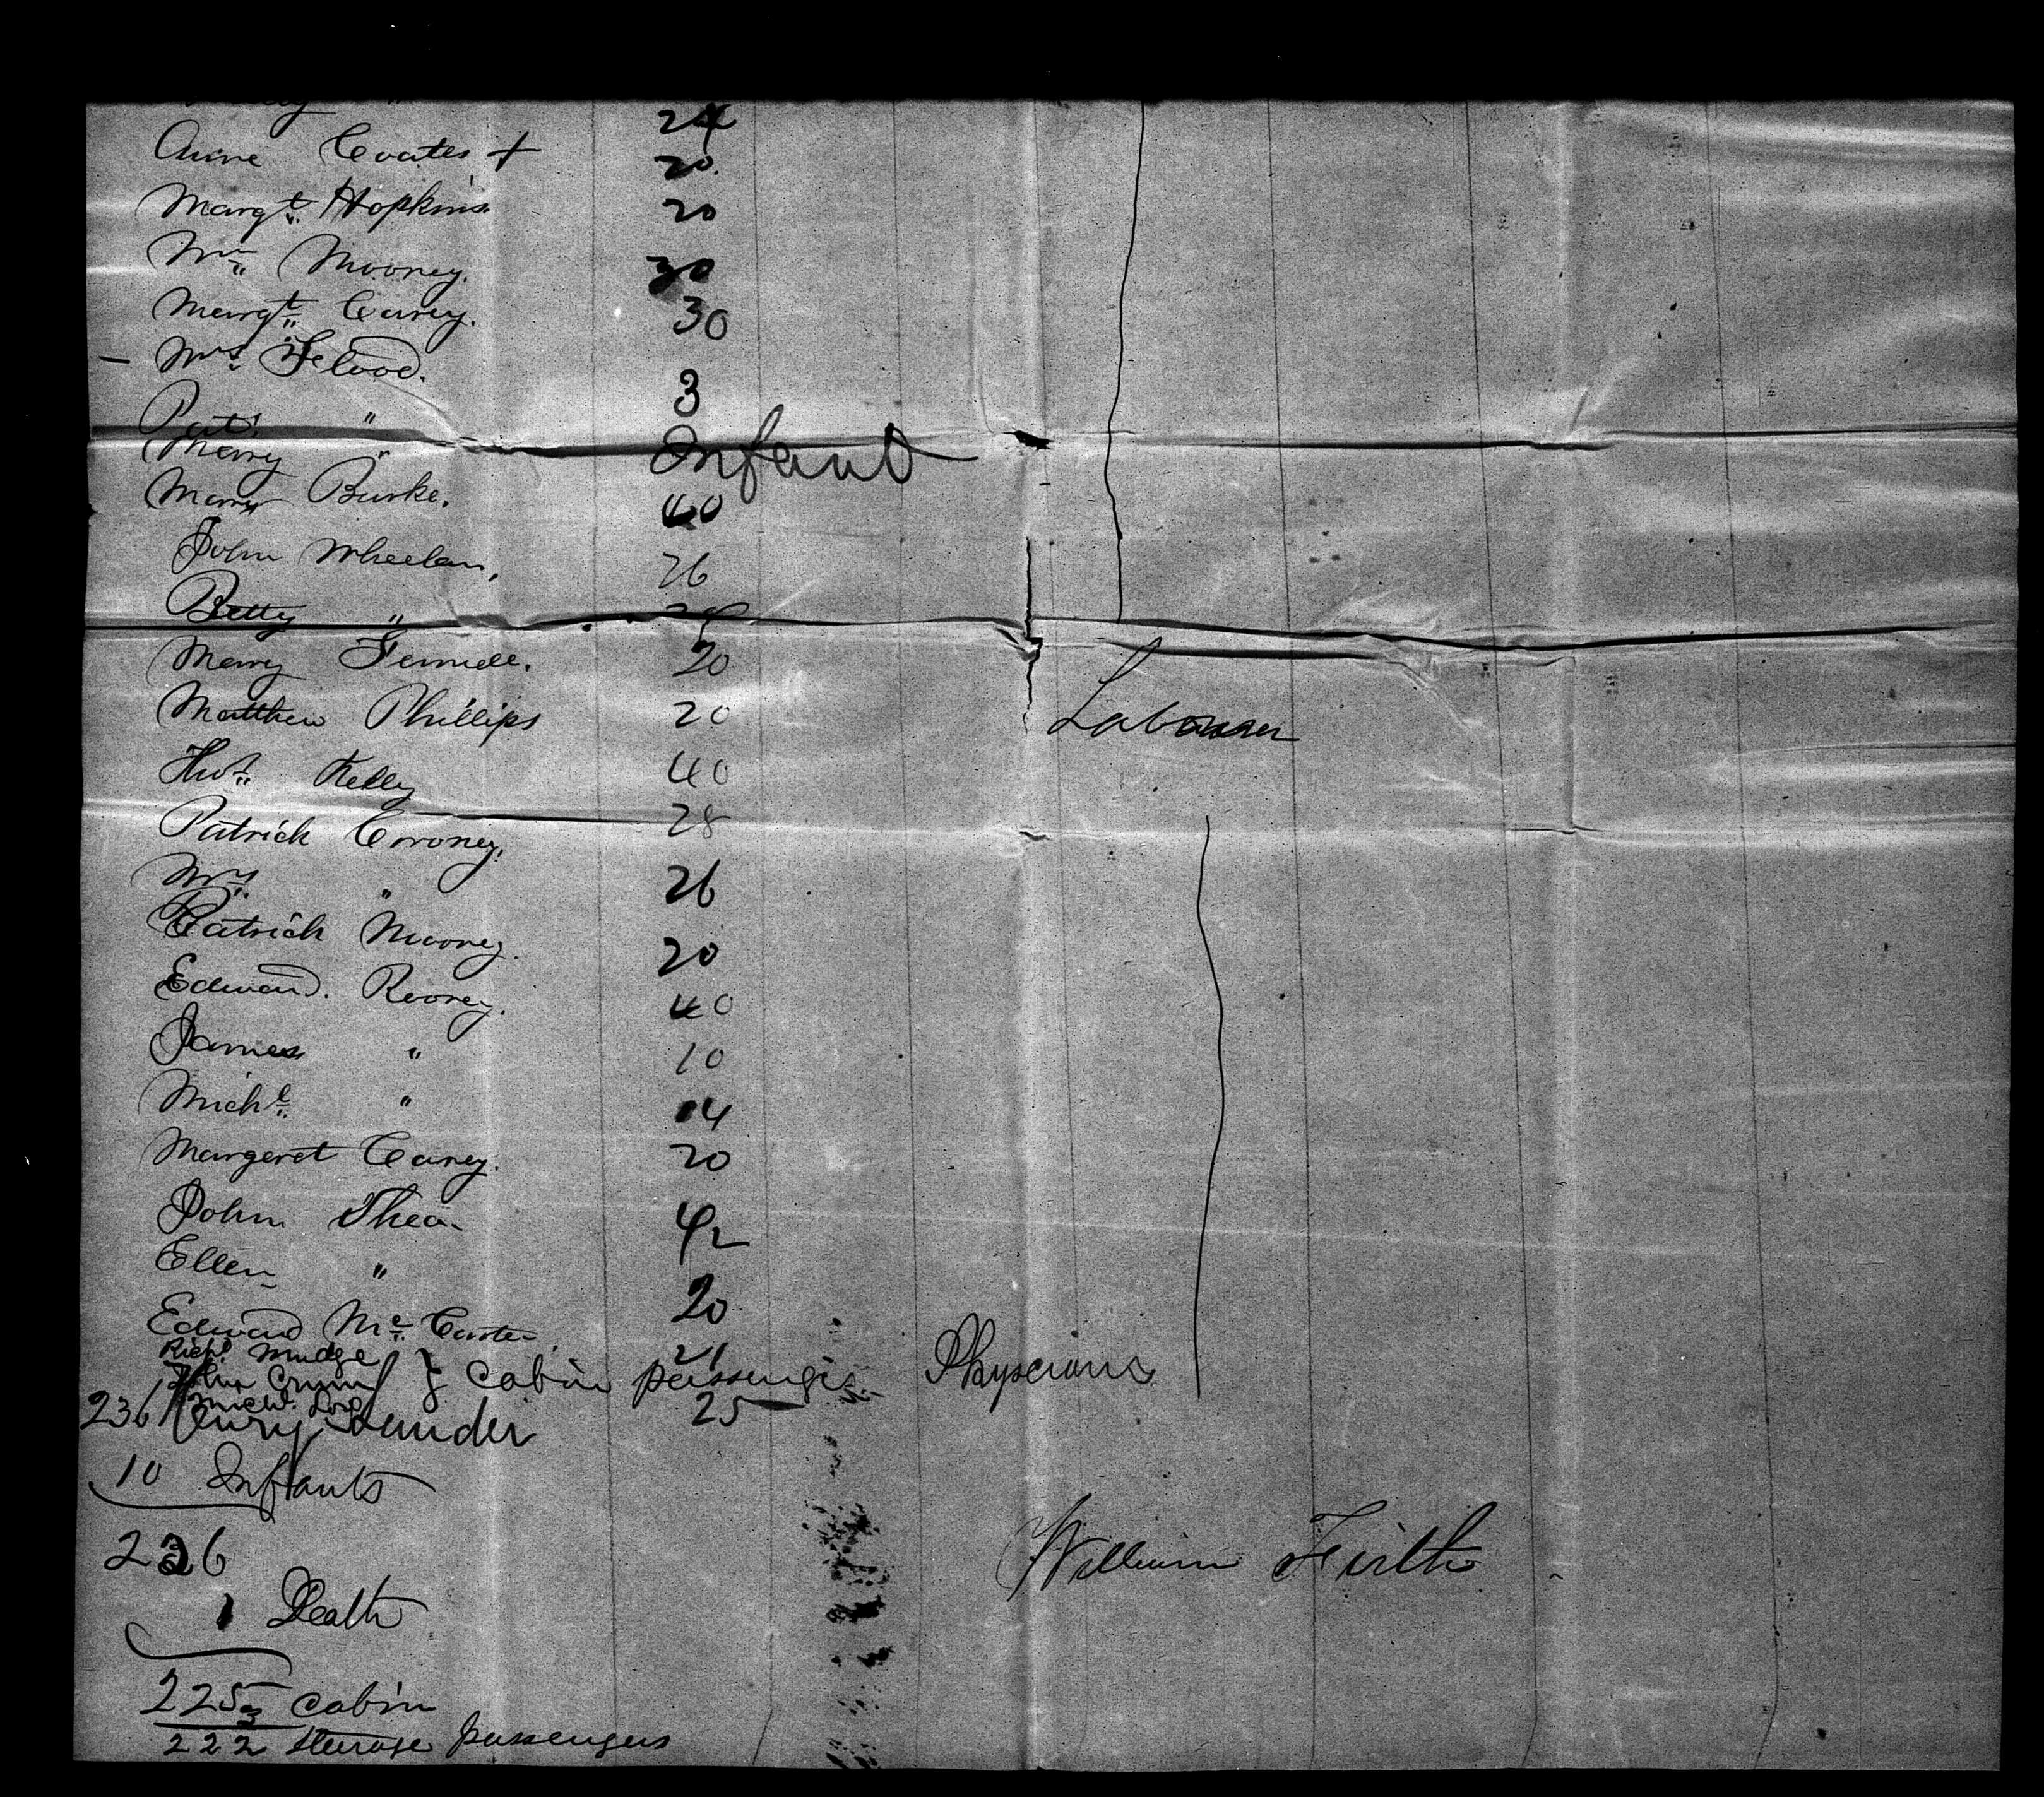 " 24
Anne Coates + 20
Margt. Hopkins. 20
Wm. Mooney. 30
Margt. Carey. 30
— Mrs. Flood.
Pat. " 3
Mary " Infant
Mary Burke. 40
John Whelan, 26
Betty "
Mary 20
Matthew Phillips 20 Labourer
Thos. Kelly 40
Patrick Croney, 28
Mrs. " 26
Patrick Mooney. 20
Edward. Rooney. 40
James " 10
Michl. " 14
Margeret Carey. 20
John Shea. 42
Ellen " 20
Edward Mc. Carter 21 Physician
Richd. Mudge } cabin passengers
John
Michl.
236 Henry Launder 25
10 Infants
226 William Firth
1 Death
225 cabin
3
222 Sterage passengers